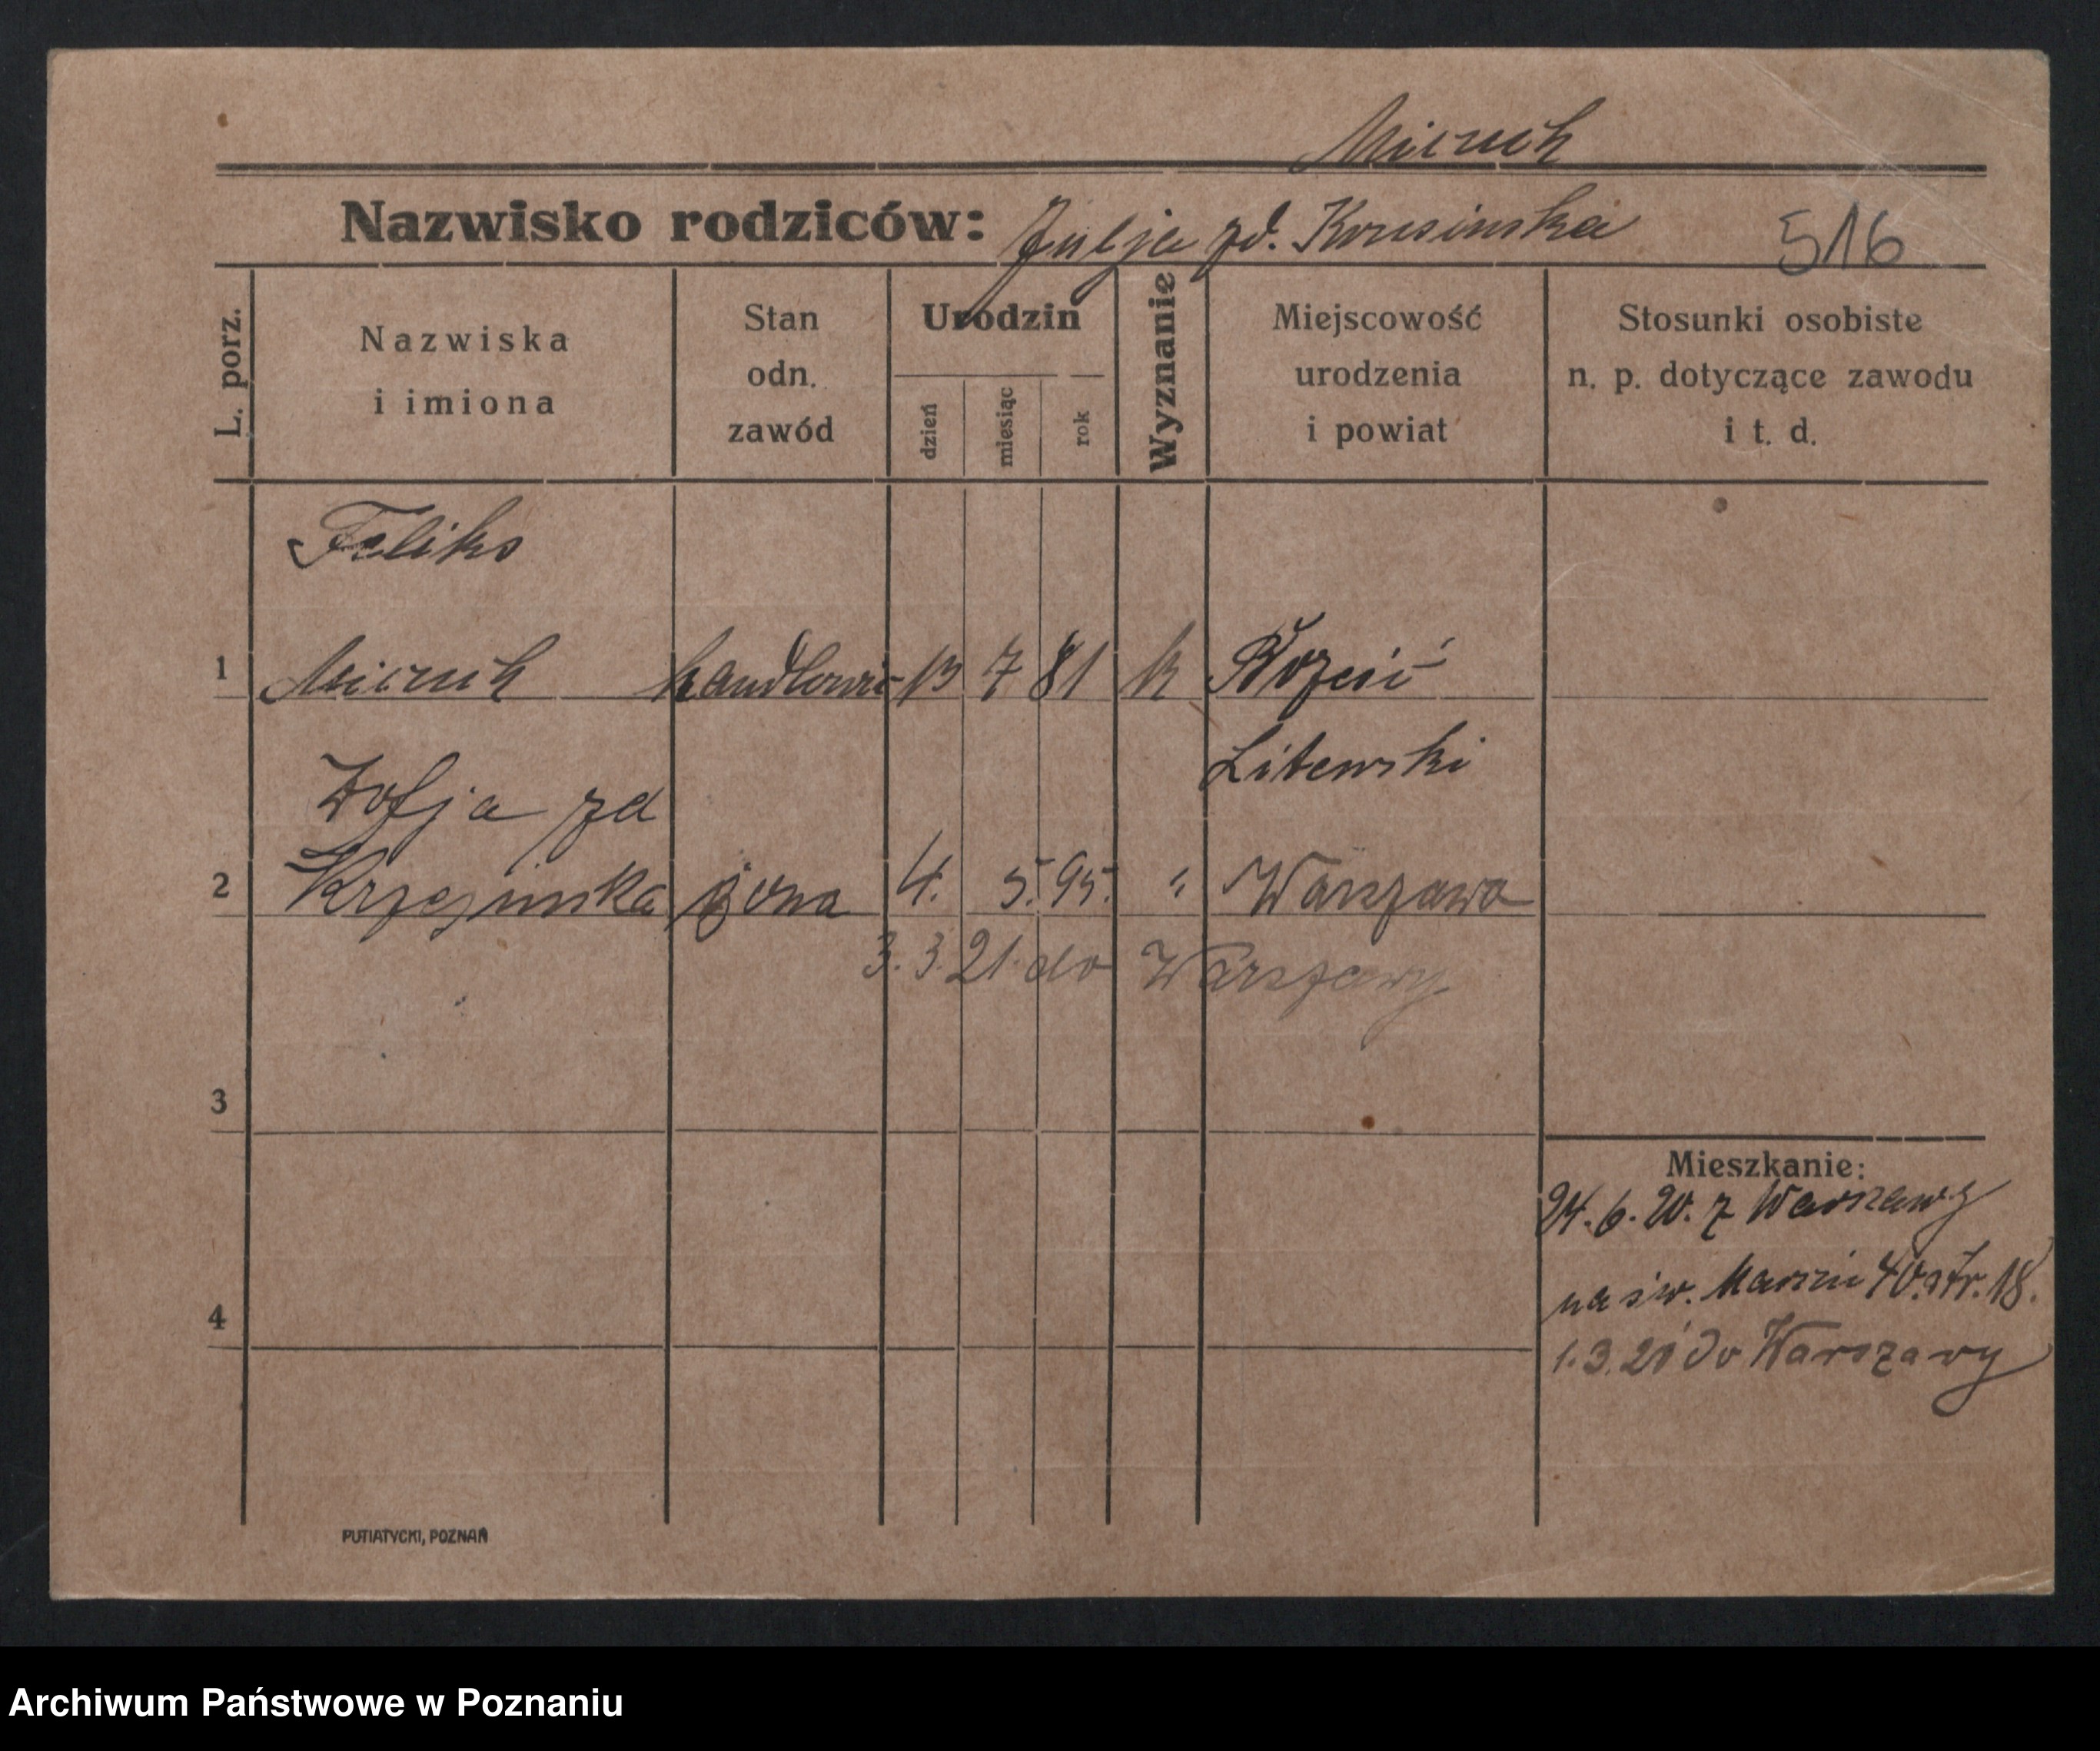 Miczuch
Nazwisko rodziców: Julja zd. Krusinska 516
L. porz.
Nazwiska
i imiona
Stan
odn.
zawód
Urodzin
dzień
miesiąc
rok
Wyznanie
Miejscowość
urodzenia
i powiat
Stosunki osobiste
n. p. dotyczące zawodu
i t. d.
Feliks
1 Miczuch handlowiec 13 7 81 k
Litewski
Zofja zd
2 żona 4. 5. 95. " Warszawa
3. 3. 21. do Warszawy.
3
Mieszkanie:
24. 6. 20. z Warszawy
na św. Marcin 40. str. 18.
4
1. 3. 21 do Warszawy
PUTIATYCKI, POZNAŃ
Archiwum Państwowe w Poznaniu